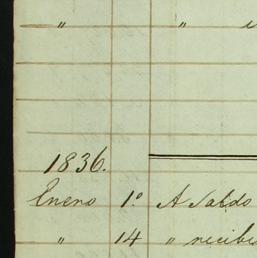 " "
1836.
Enero 1º A Saldo
" 14 " recibi